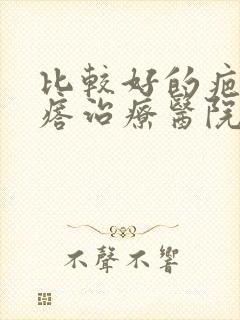 比較好的疤
痞治療醫院
不聲不響